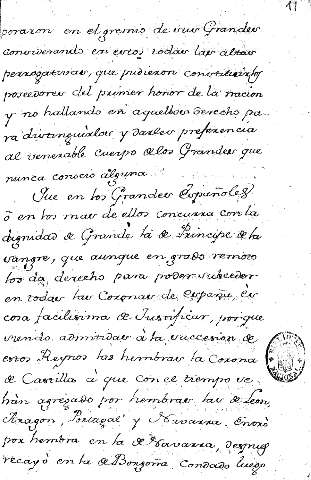 11
poraron en el gremio de sus Grandes
considerando en estos todas las altas
perrogativas, que pudieron constituirlos
poseedores del primer honor de la nacion
y no hallando en aquellos derecho pa-
ra distinguirlos y darles preferencia
al venerable cuerpo de los Grandes que
nunca conocio alguna.
Que en los Grandes Españoles
ô en los mas de ellos concurra con la
dignidad de Grande la de Principe de la
sangre, que aunque en grado remoto
los da derecho para poder subceder
en todas las Coronas de España, es
cosa facilisima de Justificar, porque
siendo admitidas à la succesion de
estos Reynos las hembras la Corona
de Castilla à que con el tiempo se
hàn agregado por hembras las de Leon,
Aragon, Portugal y Navarra, entrò
por hembra en la de Navarra, despues
recayò en la de Borgoña, Condado luego